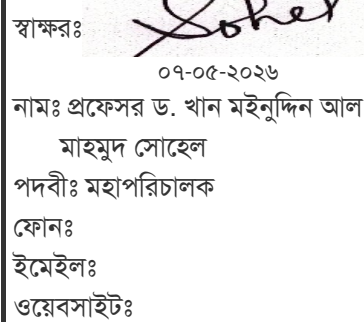 স্বাক্ষরঃ Sohel
০৭-০৫-২০২৬
নামঃ প্রফেসর ড. খান মইনুদ্দিন আল
মাহমুদ সোহেল
পদবীঃ মহাপরিচালক
ফোনঃ
ইমেইলঃ
ওয়েবসাইটঃ